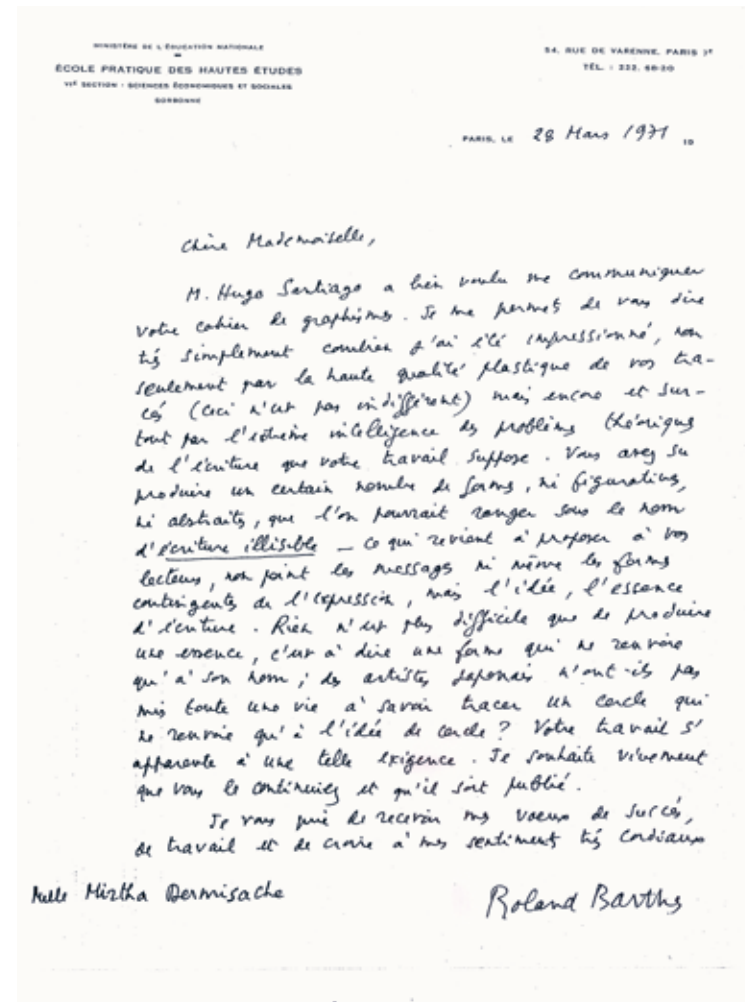 MINISTÈRE DE L'ÉDUCATION NATIONALE
ÉCOLE PRATIQUE DES HAUTES ÉTUDES
VIe SECTION : SCIENCES ÉCONOMIQUES ET SOCIALES
SORBONNE
54, RUE DE VARENNE, PARIS 7e
TÉL. : 222. 68-20
PARIS, LE 28 Mars 1971 19
Chère Mademoiselle,
M. Hugo Santiago a bien voulu me communiquer
votre cahier de graphismes. Je me permets de vous dire
très simplement combien j'ai été impressionné, non
seulement par la haute qualité plastique de vos tra-
cés (ceci n'est pas indifférent) mais encore et sur-
tout par l'extrême intelligence des problèmes théoriques
de l'écriture que votre travail suppose. Vous avez su
produire un certain nombre de formes, ni figuratives,
ni abstraites, que l'on pourrait ranger sous le nom
d'écriture illisible – ce qui revient à proposer à vos
lecteurs, non point les messages ni même les formes
contingentes de l'expression, mais l'idée, l'essence
d'écriture. Rien n'est plus difficile que de produire
une essence, c'est à dire une forme qui ne renvoie
qu'à son nom ; des artistes japonais n'ont-ils pas
mis toute une vie à savoir tracer un cercle qui
ne renvoie qu'à l'idée de cercle ? Votre travail s'
apparente à une telle exigence. Je souhaite vivement
que vous le continuiez et qu'il soit publié.
Je vous prie de recevoir mes voeux de succès,
de travail et de croire à mes sentiments très cordiaux
Melle Mirtha Dermisache
Roland Barthes